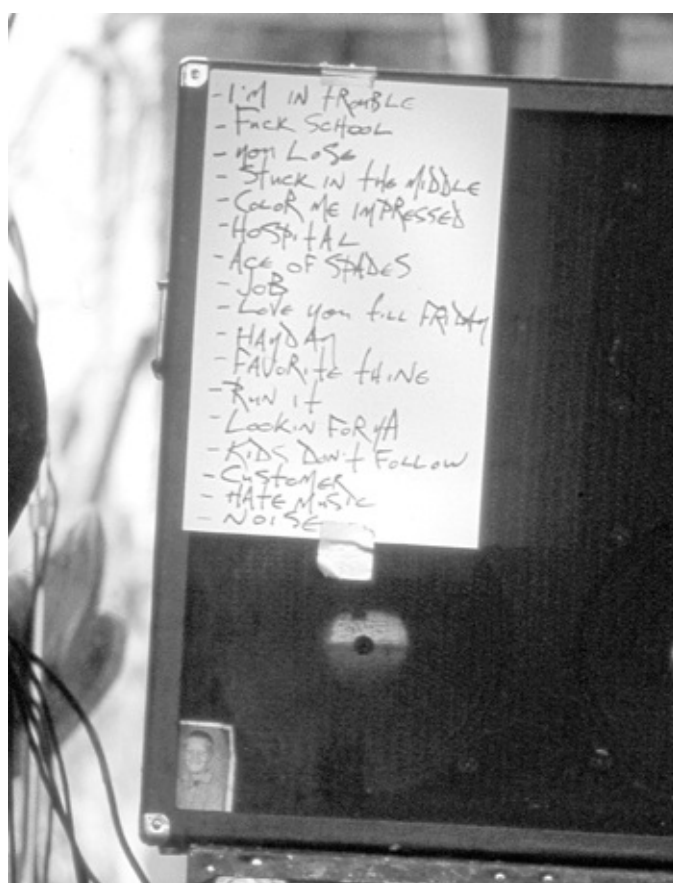 - I'M IN tRouBLE
- Fuck SCHOOL
- you LoSE
- StuCK IN the MIDDLE
- COLOR ME IMPRESSED
- HOSPItAL
- ACE OF SPADES
- JOB
- LOVE you till FRIDAy
- HAyDAy
- FAVORItE tHING
- RuN It
- LOOKIN FOR yA
- KIDS DoN't FOLLOW
- CuStOMER
- HATE MuSIC
- NOISE